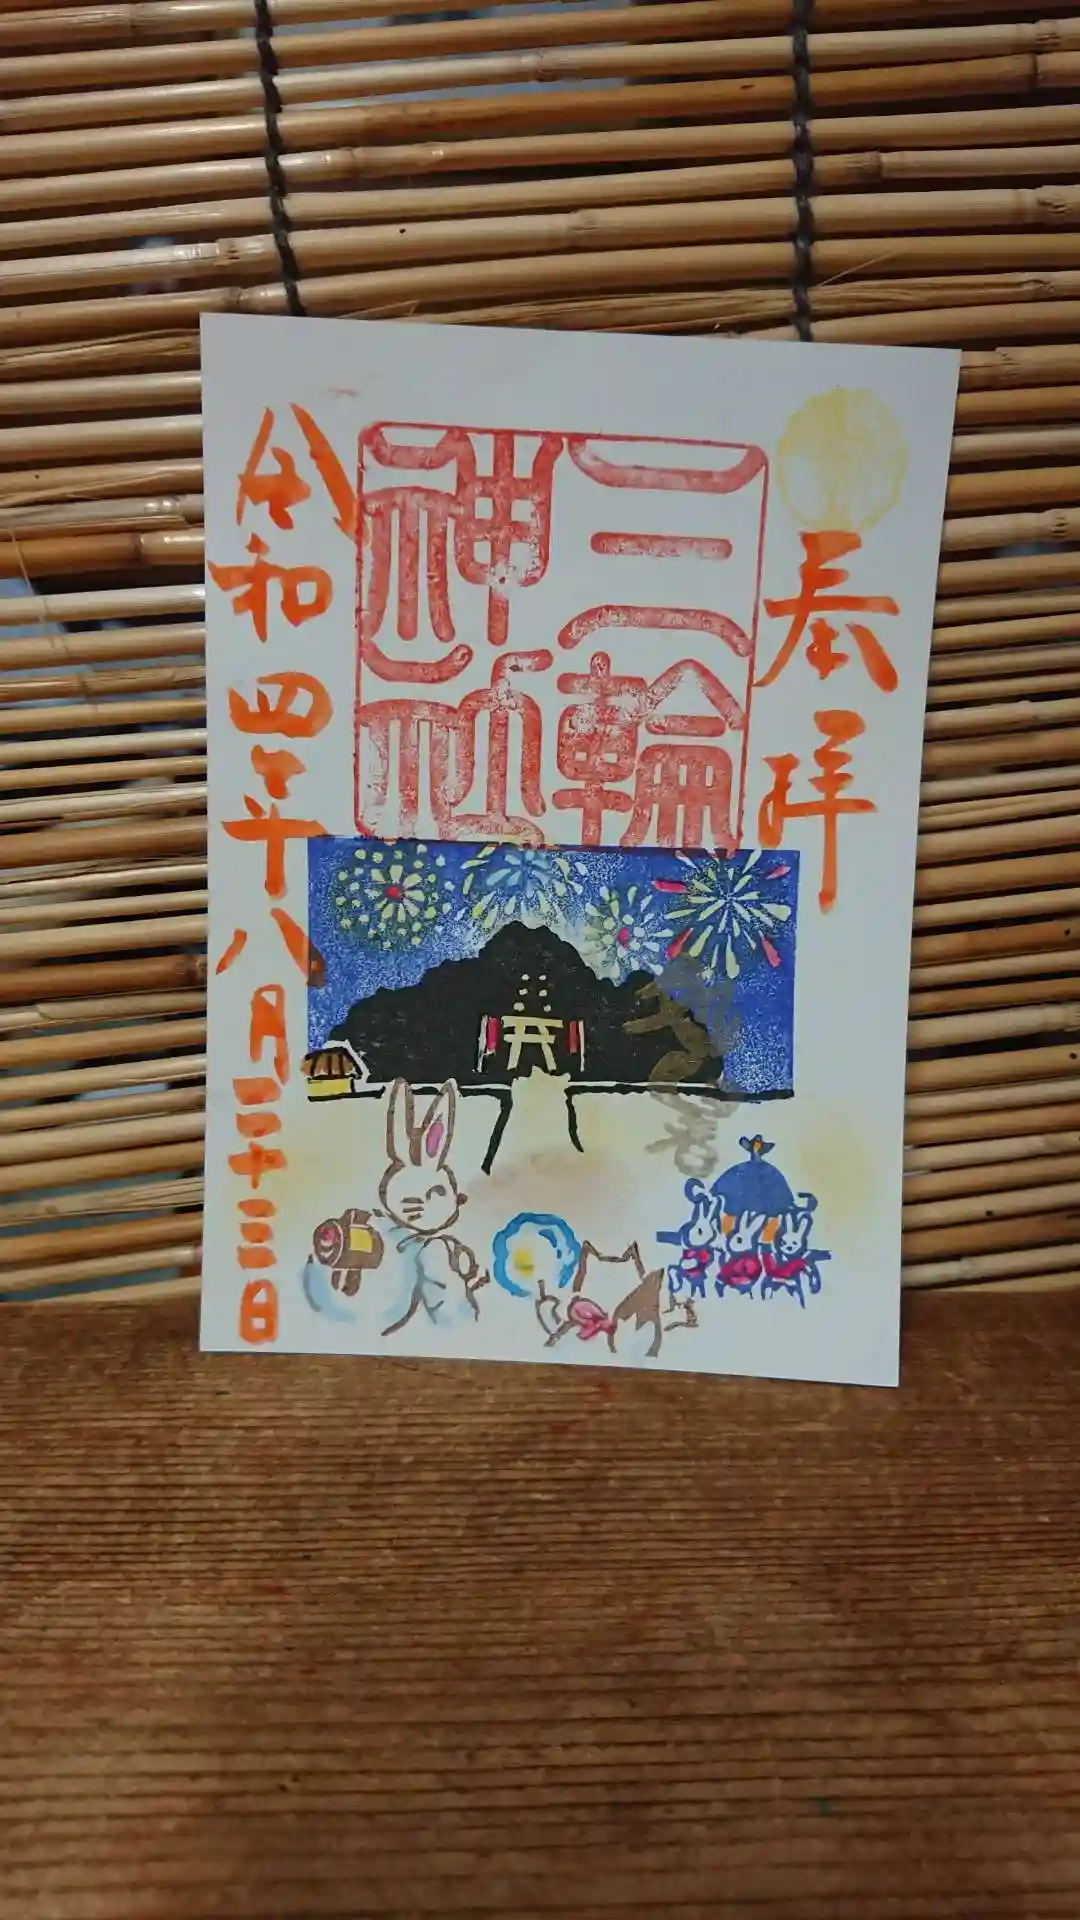 奉拝
三輪
神社
令和四年八月二十三日